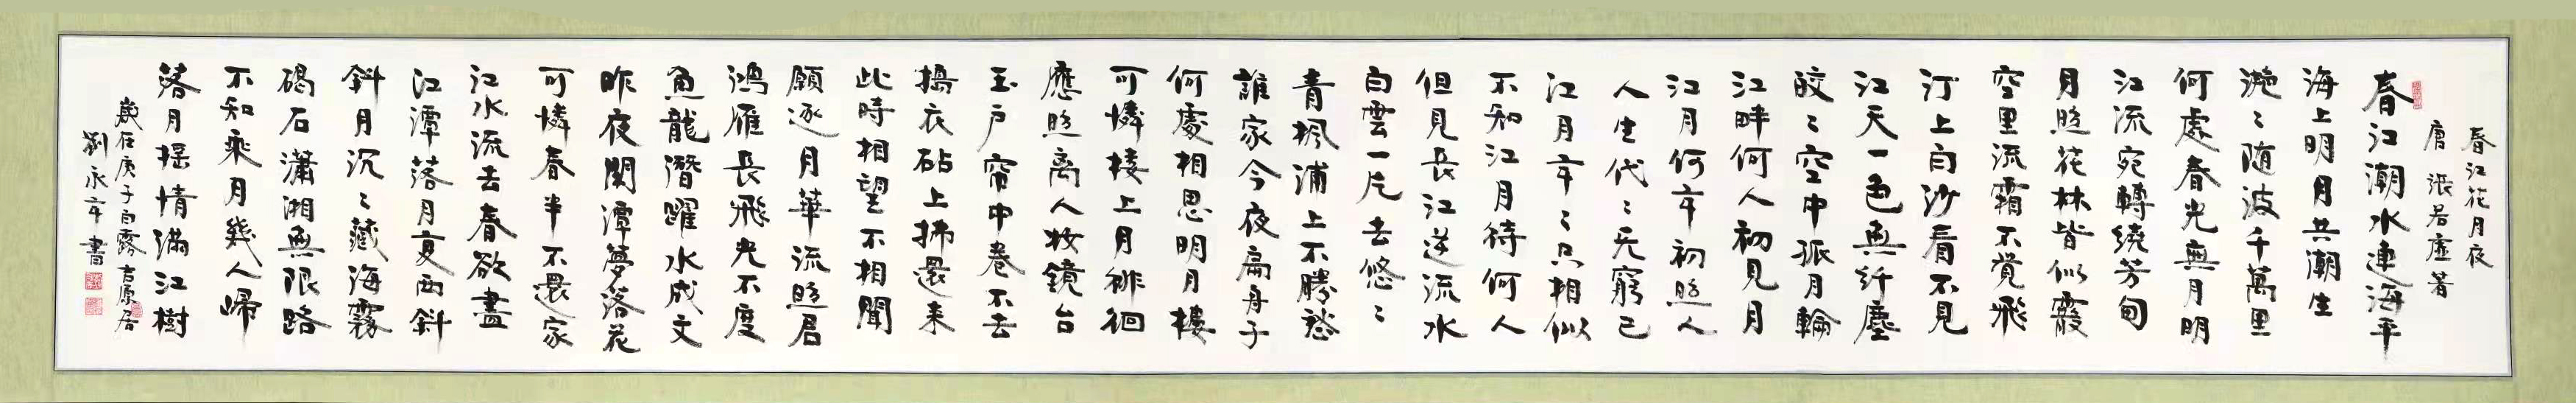 春江花月夜
唐 張若虛著
春江潮水連海平
海上明月共潮生
滟〻随波千萬里
何處春光無月明
江流宛轉繞芳甸
月照花林皆似霰
空里流霜不覚飛
汀上白沙看不見
江天一色無纤塵
皎〻空中孤月輪
江畔何人初見月
江月何年初照人
人生代〻无窮已
江月年〻只相似
不知江月待何人
但見長江送流水
白雲一片去悠〻
青楓浦上不勝愁
誰家今夜扁舟子
何處相思明月樓
可憐楼上月徘徊
應照离人妆鏡台
玉户帘中卷不去
搗衣砧上拂還来
此時相望不相聞
願逐月華流照君
鴻雁長飛光不度
魚龍潛躍水成文
昨夜閑潭夢落花
可憐春半不還家
江水流去春欲盡
江潭落月复西斜
斜月沉〻藏海霧
碣石瀟湘無限路
不知乘月幾人歸
落月摇情滿江樹
歲在庚子白露 吉原居
劉永年書